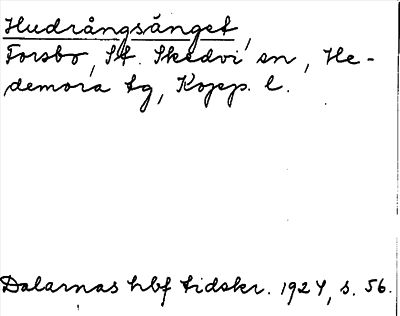 Hudrångsänget,
Forsbo, St. Skedvi sn, He-
demora tg, Kopp. l.
Dalarnas hbf tidskr. 1924, s. 56.